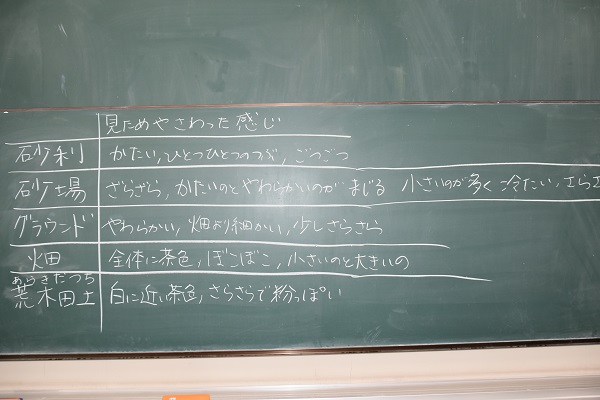 見ためやさわった感じ
砂利 かたい,ひとつひとつのつぶ,ごつごつ
砂場 ざらざら,かたいのとやわらかいのが まじる 小さいのが多く 冷たい,さらさ
グラウンド やわらかい,畑より細かい,少しさらさら
畑 全体に茶色,ぼこぼこ,小さいのと大きいの
あらきだつち
荒木田土 白に近い茶色,さらさらで粉っぽい